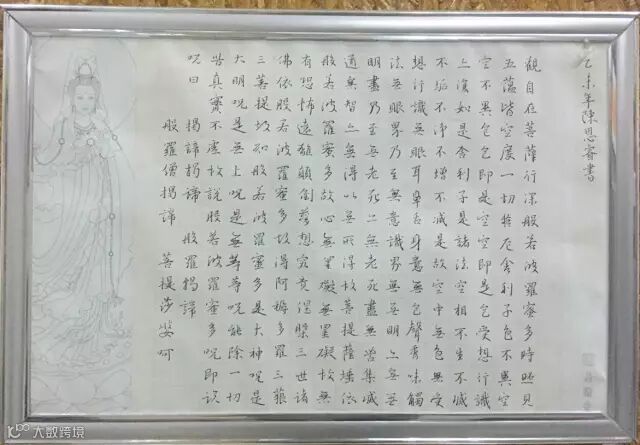 乙未年陳恩睿書
觀自在菩薩行深般若波羅蜜多時照見
五蘊皆空度一切苦厄舍利子色不異空
空不異色色即是空空即是色受想行識
亦復如是舍利子是諸法空相不生不滅
不垢不淨不增不減是故空中無色無受
想行識無眼耳鼻舌身意無色聲香味觸
法無眼界乃至無意識界無無明亦無無
明盡乃至無老死亦無老死盡無苦集滅
道無智亦無得以無所得故菩提薩埵依
般若波羅蜜多故心無罣礙無罣礙故無
有恐怖遠離顛倒夢想究竟涅槃三世諸
佛依般若波羅蜜多故得阿耨多羅三藐
三菩提故知般若波羅蜜多是大神呪是
大明呪是無上呪是無等等呪能除一切
苦真實不虛故說般若波羅蜜多呪即說
呪曰 揭諦揭諦 般羅揭諦
般羅僧揭諦 菩提莎婆呵
大数跨境